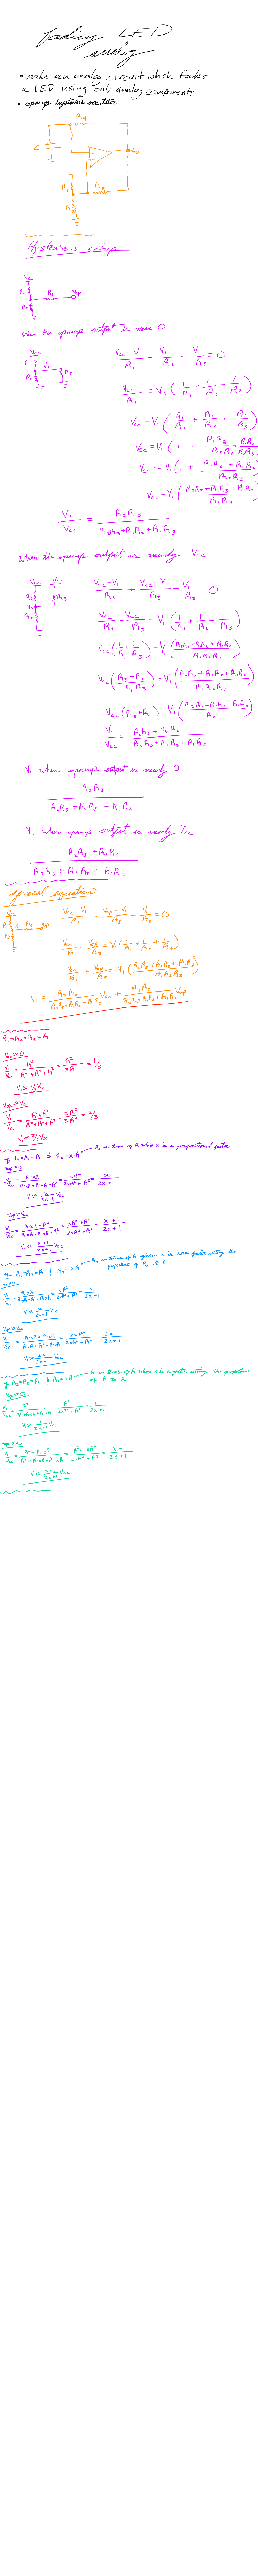 fading LED
analog
• make an analog circuit which fades
a LED using only analog components
• opamp hysterisis oscillator
R4
C1
Vop
R1
R3
R2
Hysterisis setup
Vcc
R1
R3 Vop
R2
when the opamp output is near 0
Vcc
R1 V1
R2 R3
(Vcc-V1)/R1 - V1/R2 - V1/R3 = 0
Vcc/R1 = V1(1/R1 + 1/R2 + 1/R3)
Vcc = V1(R1/R1 + R1/R2 + R1/R3)
Vcc = V1(1 + R1R3/R2R3 + R1R2/R2R3)
Vcc = V1(1 + (R1R3 + R1R2)/R2R3)
Vcc = V1((R2R3 + R1R3 + R1R2)/R2R3)
V1/Vcc = R2R3/(R2R3+R1R2+R1R3)
when the opamp output is nearly Vcc
Vcc Vcc
R1 R3
V1
R2
(Vcc-V1)/R1 + (Vcc-V1)/R3 - V1/R2 = 0
Vcc/R1 + Vcc/R3 = V1(1/R1 + 1/R2 + 1/R3)
Vcc(1/R1 + 1/R3) = V1((R2R3+R1R3+R1R2)/R1R2R3)
Vcc((R3+R1)/R1R3) = V1((R2R3+R1R3+R1R2)/R1R2R3)
Vcc(R3+R1) = V1((R2R3+R1R3+R1R2)/R2)
V1/Vcc = (R2R3+R1R2)/(R2R3+R1R3+R1R2)
V1 when opamp output is nearly 0
R2R3/(R2R3+R1R3+R1R2)
V1 when opamp output is nearly Vcc
(R2R3+R1R2)/(R2R3+R1R3+R1R2)
general equation
R1 V1 R3 Vop
R2
(Vcc-V1)/R1 + (Vop-V1)/R3 - V1/R2 = 0
Vcc/R1 + Vop/R3 = V1(1/R1 + 1/R2 + 1/R3)
Vcc/R1 + Vop/R3 = V1((R2R3+R1R3+R1R2)/R1R2R3)
V1 = R2R3/(R2R3+R1R3+R1R2) Vcc + R1R2/(R2R3+R1R3+R1R2) Vop
R1=R2=R3=R
Vop=0
V1/Vcc = R²/(R²+R²+R²) = R²/3R² = 1/3
V1=1/3Vcc
Vop=Vcc
V1/Vcc = (R²+R²)/(R²+R²+R²) = 2R²/3R² = 2/3
V1=2/3Vcc
if R1=R2=R & R3=xR
R3 in terms of R where x is a proportional factor
Vop=0
V1/Vcc = R·xR/(R·xR+R·xR+R·R) = xR²/(2xR²+R²) = x/(2x+1)
V1=x/(2x+1) Vcc
Vop=Vcc
V1/Vcc = (R·xR+R²)/(R·xR+R·xR+R²) = (xR²+R²)/(2xR²+R²) = (x+1)/(2x+1)
V1=(x+1)/(2x+1) Vcc
if R1=R3=R & R2=xR
Vop=0
V1/Vcc = xR²/(2xR²+R²) = x/(2x+1)
V1=x/(2x+1) Vcc
Vop=Vcc
V1/Vcc = 2xR²/(2xR²+R²) = 2x/(2x+1)
V1=2x/(2x+1) Vcc
if R2=R3=R & R1=xR
R1 in terms of R where x is a factor setting the proportion
of R1 to R
Vop=0
V1/Vcc = R²/(2xR²+R²) = 1/(2x+1)
V1=1/(2x+1) Vcc
Vop=Vcc
V1/Vcc = (R²+xR²)/(2xR²+R²) = (x+1)/(2x+1)
V1=(x+1)/(2x+1) Vcc